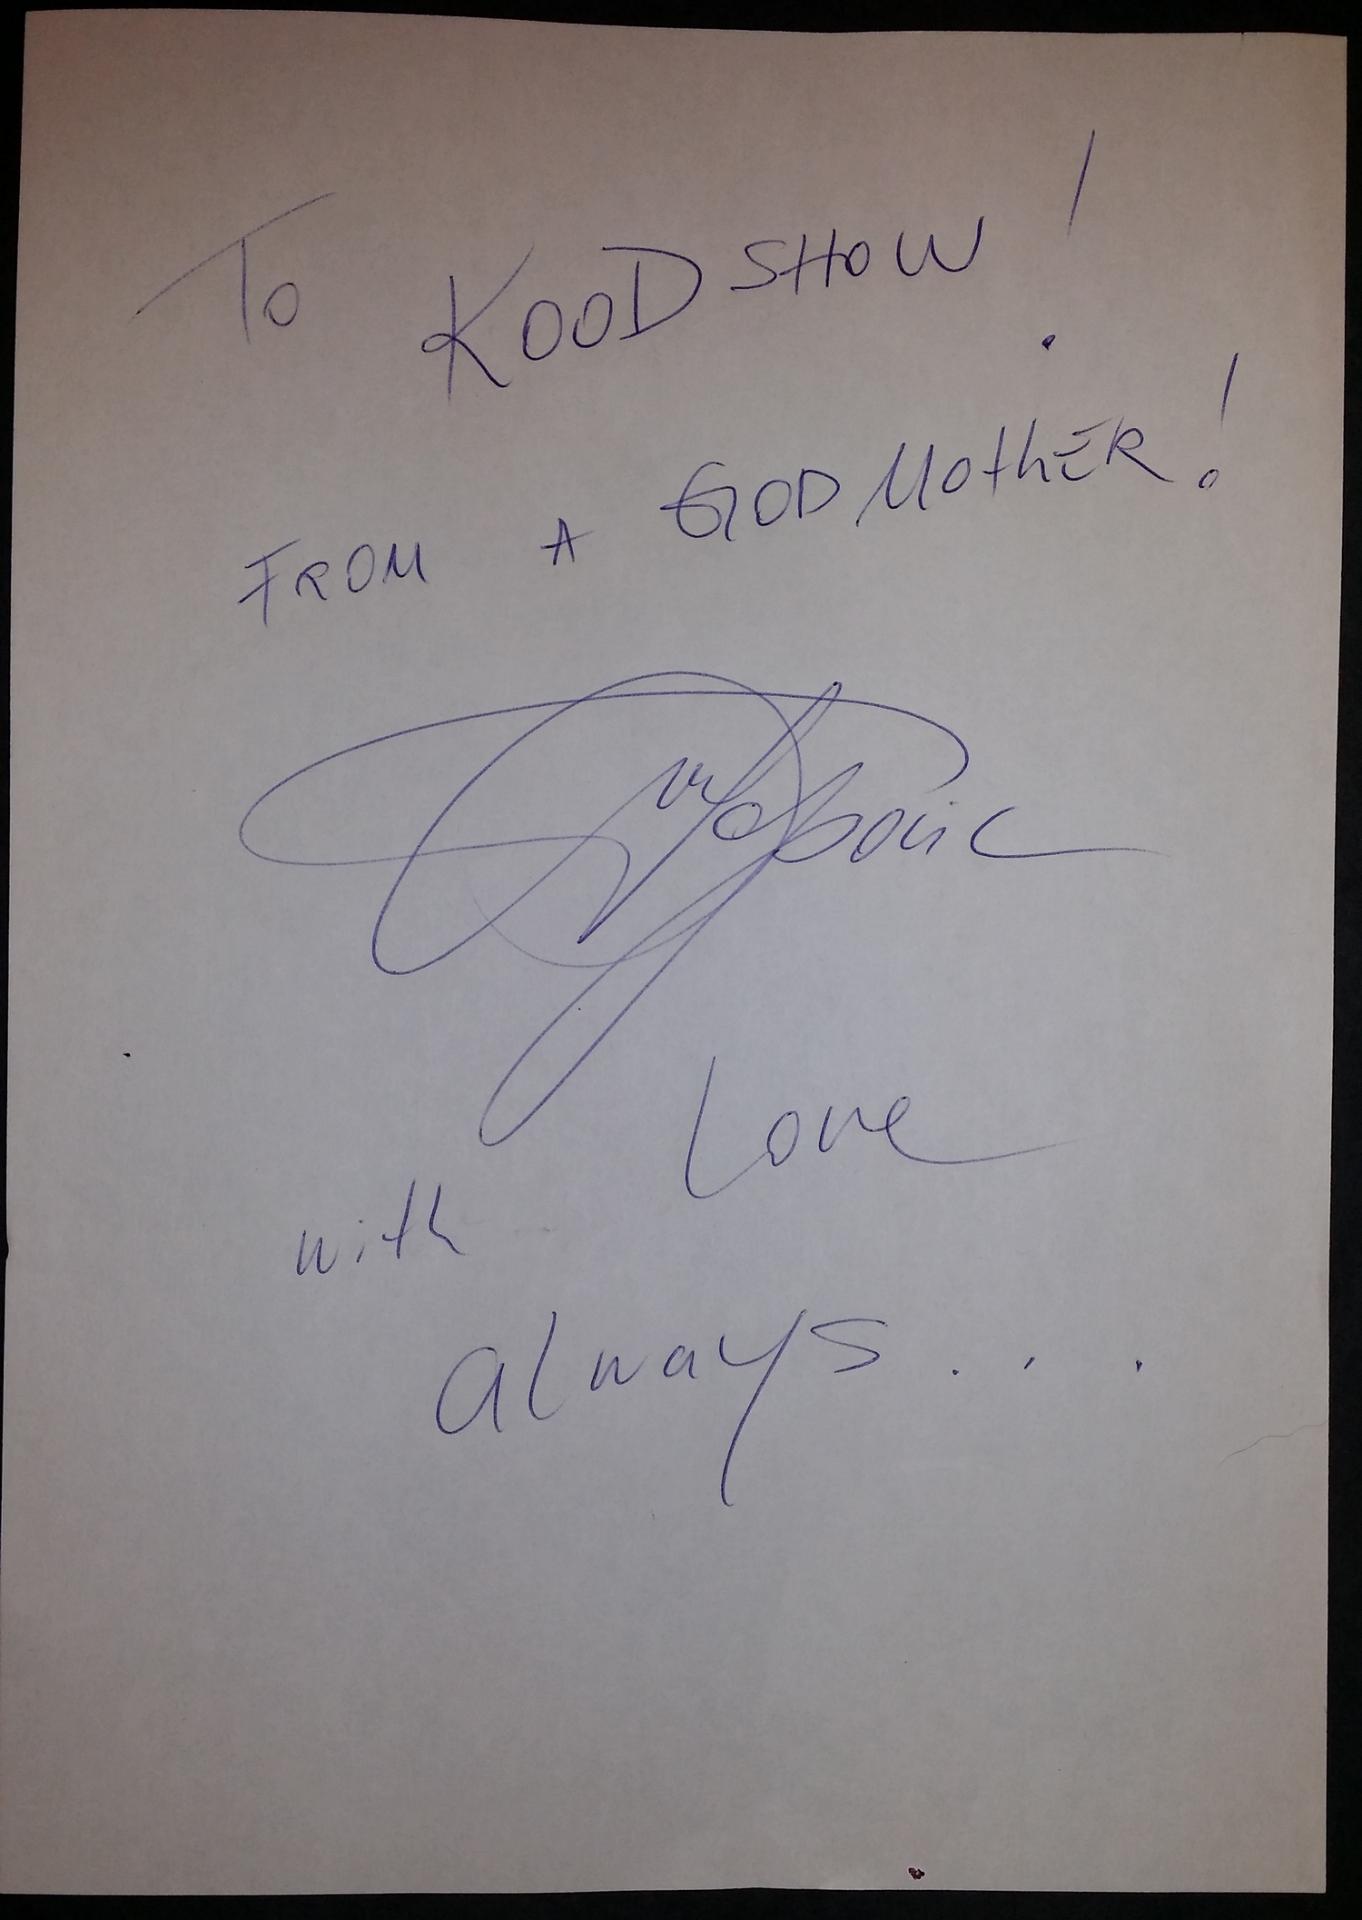 To KOOD SHOW!
FROM A GODMothER!
with Love
always...